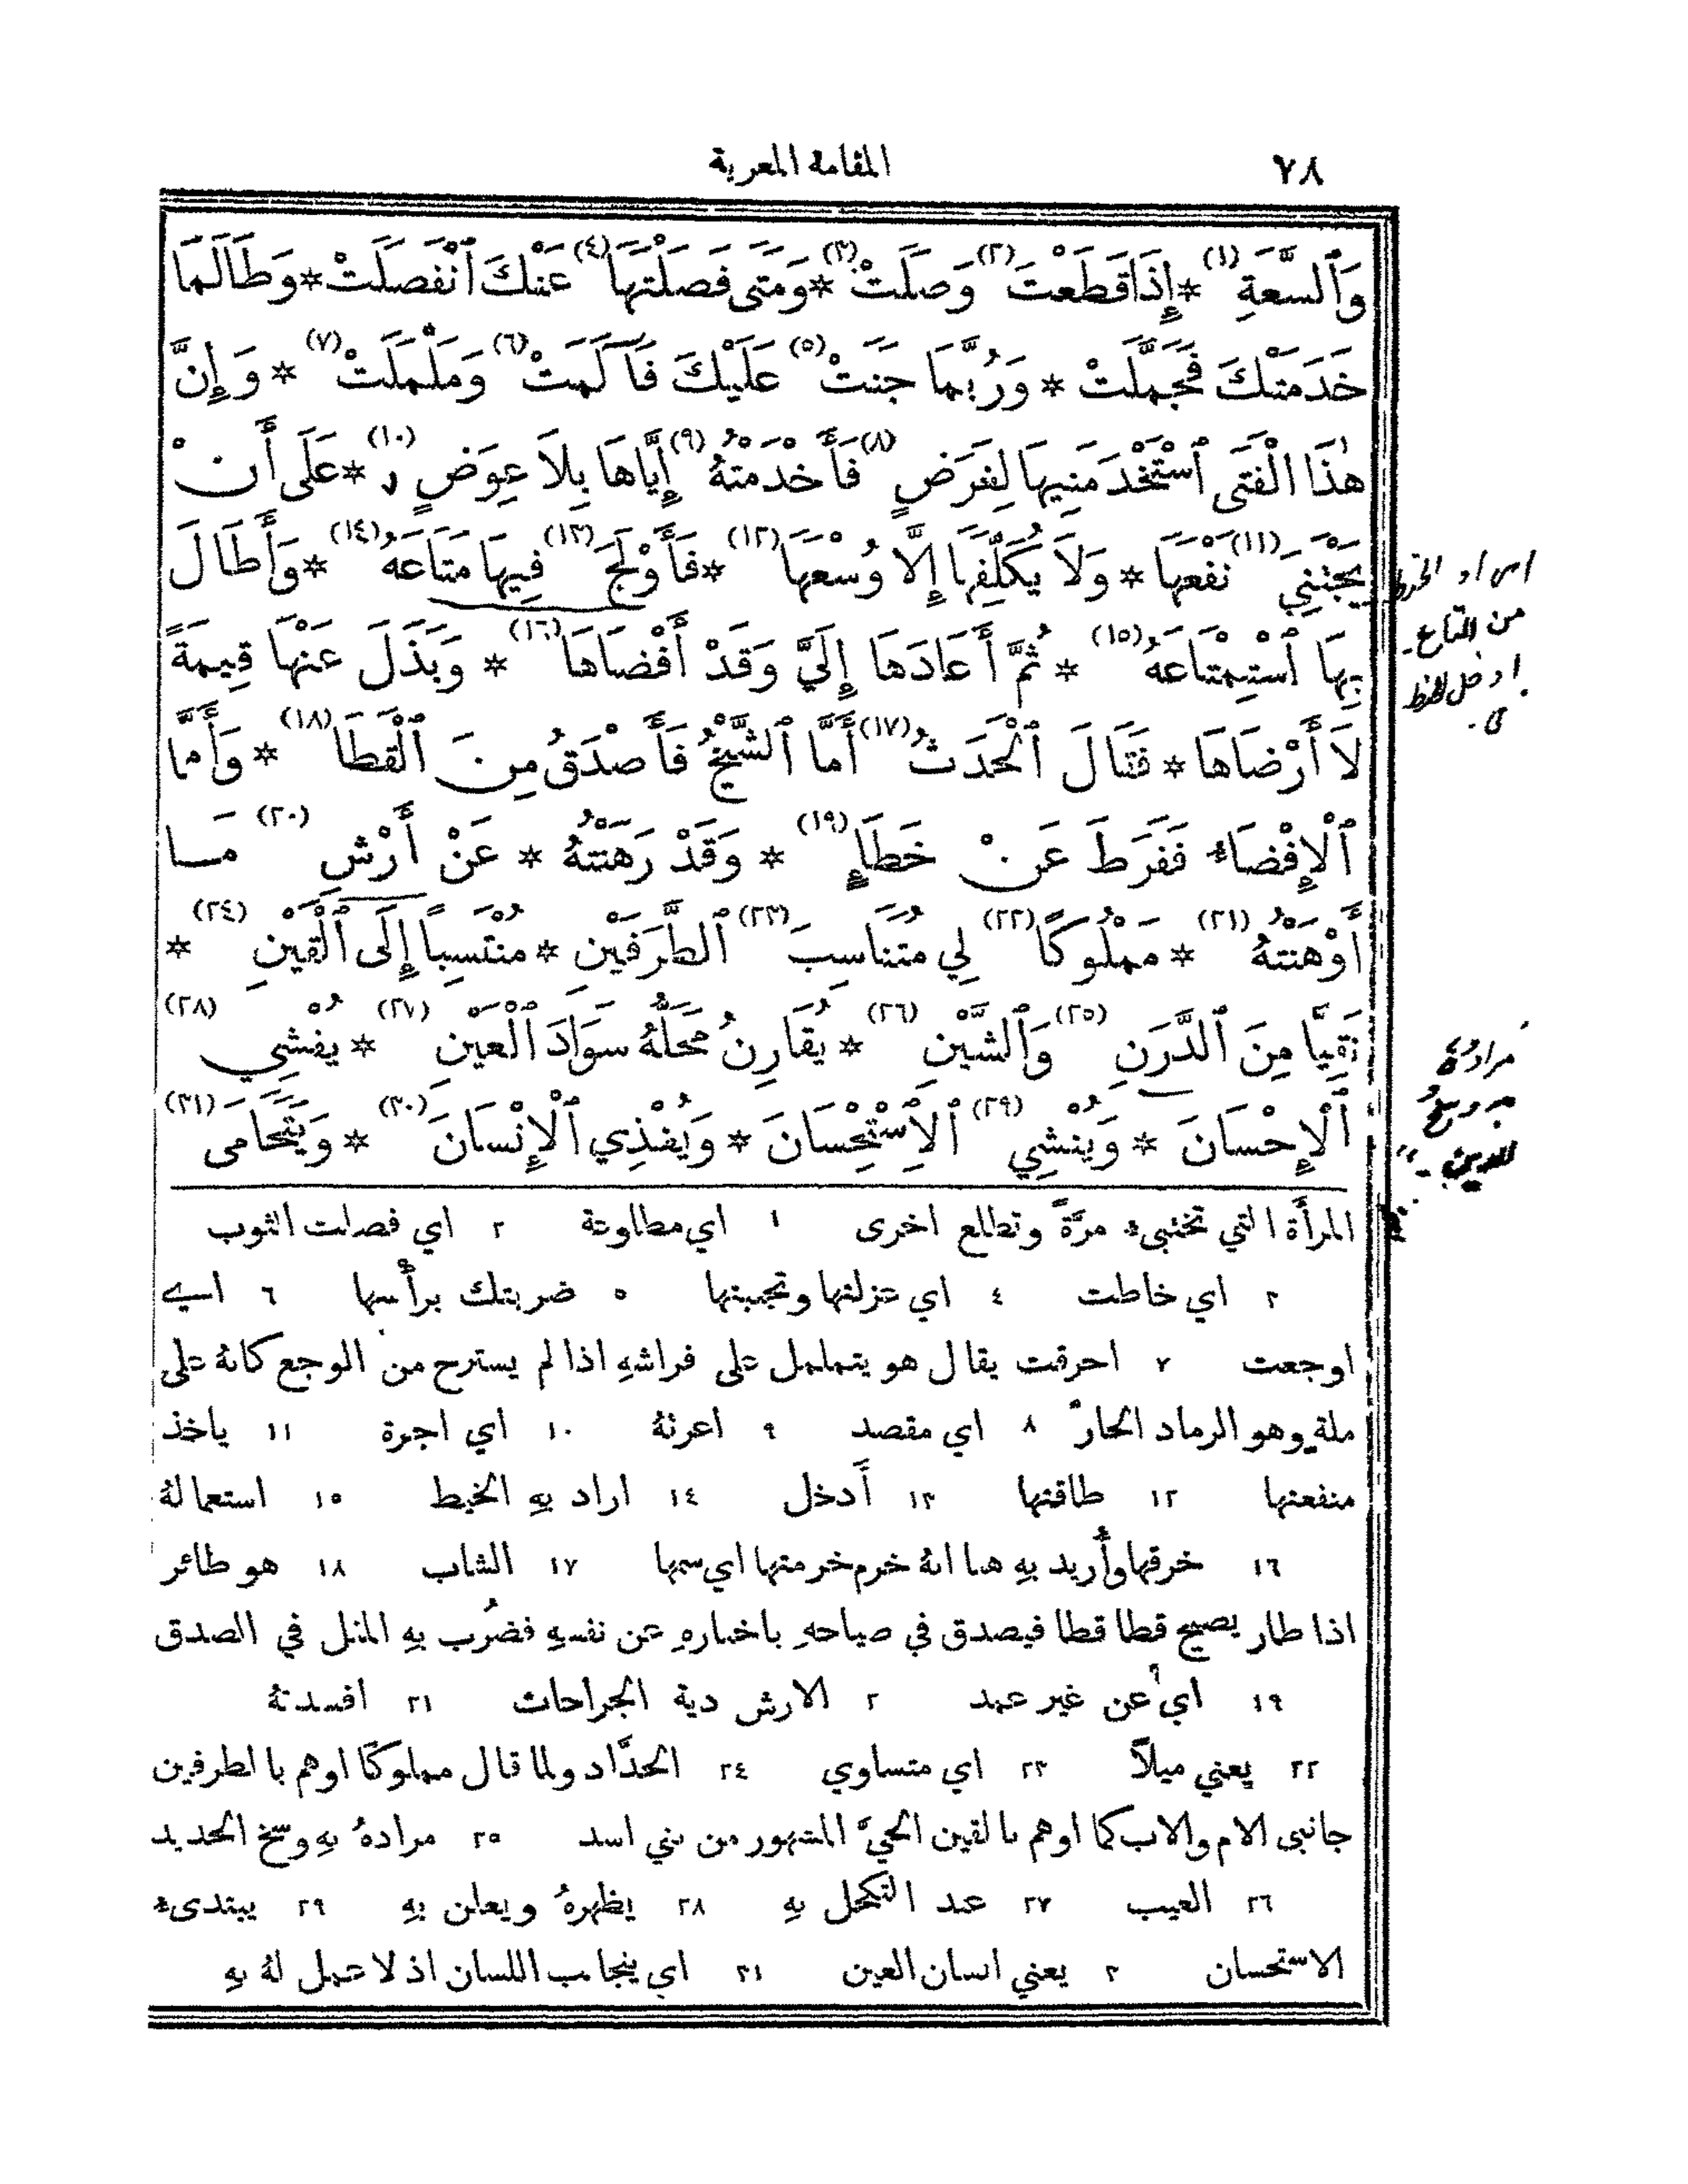 ٧٨
المقامة المعرية
وَٱلسَّعَةِ (١) * إِذَا قَطَعْتَ (٢) وَصَلَتْ (٣) * وَمَتَى فَصَلْتَهَا (٤) عَنْكَ ٱنْفَصَلَتْ * وَطَالَمَا
خَدَمَتْكَ فَجَمَّلَتْ * وَرُبَّمَا جَنَتْ (٥) عَلَيْكَ فَآلَمَتْ (٦) وَمَلْمَلَتْ (٧) * وَإِنَّ
هٰذَا الْفَتَى ٱسْتَخْدَمَنِيهَا لِغَرَضٍ (٨) فَأَخْدَمْتُهُ (٩) إِيَّاهَا بِلاَ عِوَضٍ (١٠) * عَلَى أَنْ
يَجْتَنِيَ (١١) نَفْعَهَا * وَلاَ يُكَلِّفَهَا إِلاَّ وُسْعَهَا (١٢) * فَأَوْلَجَ (١٣) فِيهَا مَتَاعَهُ (١٤) * وَأَطَالَ
بِهَا ٱسْتِمْتَاعَهُ (١٥) * ثُمَّ أَعَادَهَا إِلَيَّ وَقَدْ أَفْضَاهَا (١٦) * وَبَذَلَ عَنْهَا قِيمَةً
لاَ أَرْضَاهَا * فَقَالَ ٱلْحَدَثُ (١٧) أَمَّا ٱلشَّيْخُ فَأَصْدَقُ مِنَ ٱلْقَطَا (١٨) * وَأَمَّا
ٱلْإِفْضَاءُ فَفَرَطَ عَنْ خَطَإٍ (١٩) * وَقَدْ رَهَنْتُهُ * عَنْ أَرْشِ (٢٠) مَا
أَوْهَنْتُهُ (٢١) * مَمْلُوكًا (٢٢) لِي مُتَنَاسِبَ (٢٣) ٱلطَّرَفَيْنِ * مُنْتَسِبًا إِلَى ٱلْقَيْنِ (٢٤) *
نَقِيًّا مِنَ ٱلدَّرَنِ (٢٥) وَٱلشَّيْنِ (٢٦) * يُقَارِنُ مَحَلُّهُ سَوَادَ ٱلْعَيْنِ (٢٧) * يُفْشِي (٢٨)
ٱلْإِحْسَانَ * وَيُنْشِي (٢٩) ٱلِٱسْتِحْسَانَ * وَيُغْذِي ٱلْإِنْسَانَ (٣٠) * وَيَتَحَامَى (٣١)
من المتاع
مرادهُ
المرأة التي تختبىء مرّةً وتطلع اخرى ١ اي مطاوعة ٢ اي فصلت الثوب
٣ اي خاطت ٤ اي عزلتها وتجنبتها ٥ ضربتك برأسها ٦ اي
اوجعت ٧ احرقت يقال هو يتململ على فراشهِ اذا لم يسترح من الوجع كانهُ على
ملة وهو الرماد الحارّ ٨ اي مقصد ٩ اعرتهُ ١٠ اي اجرة ١١ ياخذ
منفعتها ١٢ طاقتها ١٣ أَدخل ١٤ اراد بهِ الخيط ١٥ استعمالهُ
١٦ خرقها وأُريد بهِ هنا انهُ خرم خرمتها اي سمها ١٧ الشاب ١٨ هو طائر
اذا طار يصيح قطا قطا فيصدق في صياحهِ باخبارهِ عن نفسهِ فضُرب بهِ المثل في الصدق
١٩ اي عن غير عمد ٢٠ الارش دية الجراحات ٢١ افسدتهُ
٢٢ يعني ميلاً ٢٣ اي متساوي ٢٤ الحدَّاد ولما قال مملوكًا اوهم بالطرفين
جانبى الام والاب كما اوهم بالقين الحيّ المشهور من بني اسد ٢٥ مرادهُ بهِ وسخ الحديد
٢٦ العيب ٢٧ عند التكحل بهِ ٢٨ يظهرهُ ويعلن بهِ ٢٩ يبتدىء
الاستحسان ٣٠ يعني انسان العين ٣١ اي يتجانب اللسان اذ لا عمل لهُ بهِ